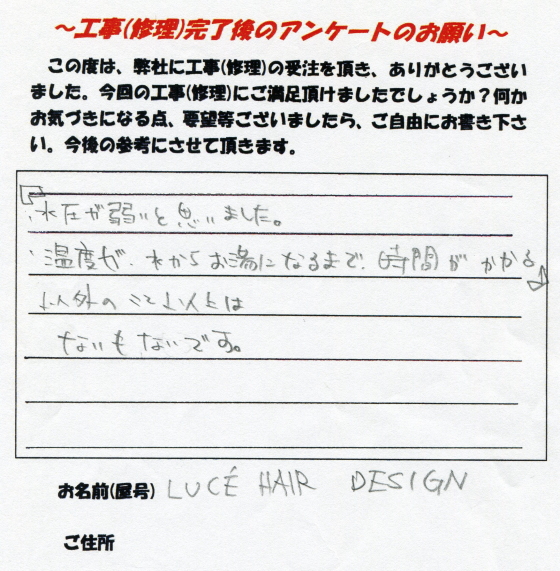 ～工事(修理)完了後のアンケートのお願い～
この度は、弊社に工事(修理)の受注を頂き、ありがとうござい
ました。今回の工事(修理)にご満足頂けましたでしょうか？何か
お気づきになる点、要望等ございましたら、ご自由にお書き下さ
い。今後の参考にさせて頂きます。
「水圧が弱いと思いました。
・温度が、水からお湯になるまで、時間がかかる」
以外の
ないもないです。
お名前(屋号) LUCÉ HAIR DESIGN
ご住所